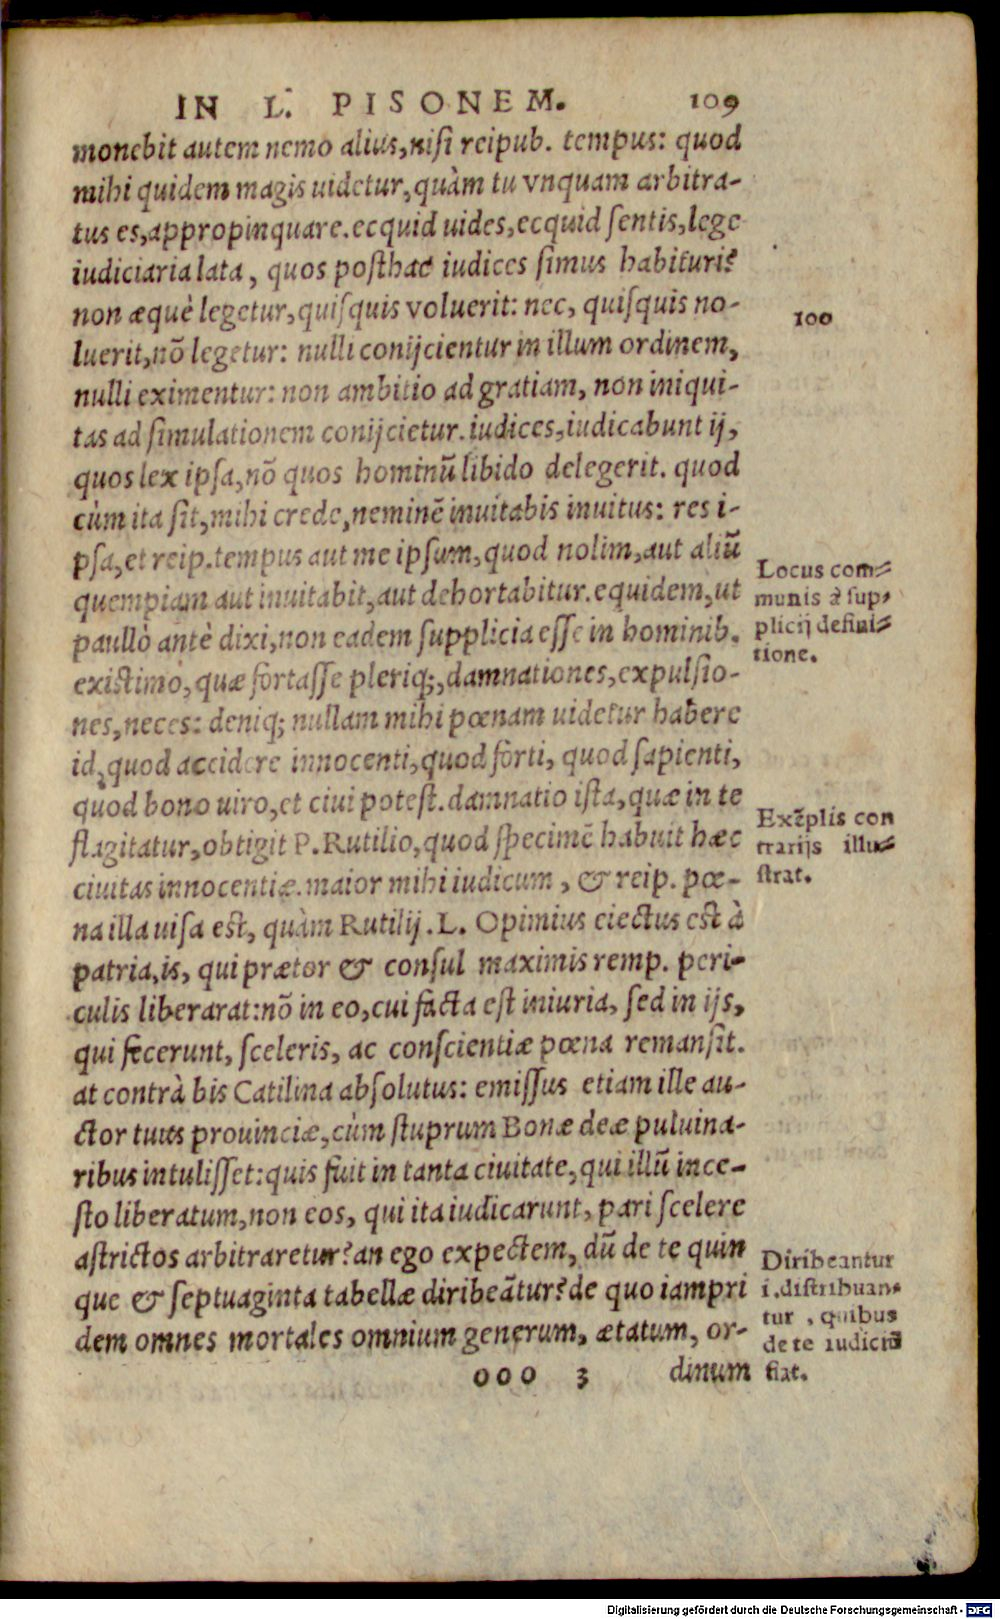 IN L. PISONEM. 109
monebit autem nemo alius, nisi reipub. tempus: quod
mihi quidem magis uidetur, quàm tu vnquam arbitra-
tus es, appropinquare. ecquid uides, ecquid sentis, lege
iudiciaria lata, quos posthac iudices simus habituri?
non æquè legetur, quisquis voluerit: nec, quisquis no-
luerit, nõ legetur: nulli conijcientur in illum ordinem,
nulli eximentur: non ambitio ad gratiam, non iniqui-
tas ad simulationem conijcietur. iudices, iudicabunt ij,
quos lex ipsa, nõ quos hominũ libido delegerit. quod
cùm ita sit, mihi crede, neminẽ inuitabis inuitus: res i-
psa, et reip. tempus aut me ipsum, quod nolim, aut aliũ
quempiam aut inuitabit, aut dehortabitur. equidem, ut
paullò antè dixi, non eadem supplicia esse in hominib.
existimo, quæ fortasse pleriq;, damnationes, expulsio-
nes, neces: deniq; nullam mihi pœnam uidetur habere
id, quod accidere innocenti, quod forti, quod sapienti,
quod bono uiro, et ciui potest. damnatio ista, quæ in te
flagitatur, obtigit P. Rutilio, quod specimẽ habuit hæc
ciuitas innocentiæ. maior mihi iudicum, & reip. pœ-
na illa uisa est, quàm Rutilij. L. Opimius eiectus est à
patria, is, qui prætor & consul maximis remp. peri-
culis liberarat: nõ in eo, cui facta est iniuria, sed in ijs,
qui fecerunt, sceleris, ac conscientiæ pœna remansit.
at contrà bis Catilina absolutus: emissus etiam ille au-
ctor tuus prouinciæ, cùm stuprum Bonæ deæ puluina-
ribus intulisset: quis fuit in tanta ciuitate, qui illũ ince-
sto liberatum, non eos, qui ita iudicarunt, pari scelere
astrictos arbitraretur? an ego expectem, dũ de te quin
que & septuaginta tabellæ diribeãtur? de quo iampri
dem omnes mortales omnium generum, ætatum, or-
ooo 3 dinum
100
Locus com=
munis à sup-
plicij defini=
tione.
Exẽplis con
trarijs illu=
strat.
Diribeantur
i. distribuan-
tur, quibus
de te iudiciũ
fiat.
Digitalisierung gefördert durch die Deutsche Forschungsgemeinschaft - DFG